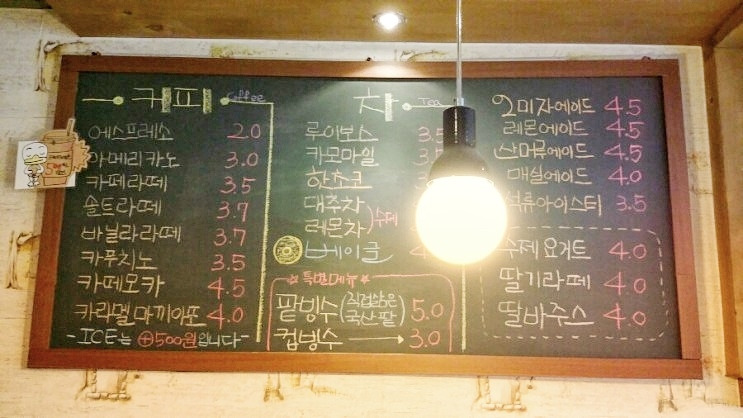 커피 Coffee
에스프레소 2.0
아메리카노 3.0
카페라떼 3.5
솔트라떼 3.7
바닐라라떼 3.7
카푸치노 3.5
카페모카 4.5
카라멜마끼아또 4.0
-ICE는 ⊕500원입니다-
차 Tea
루이보스 3.5
카모마일
핫쵸코
대추차
레몬차 수제
베이글
☆ 특별메뉴 ☆
팥빙수 (직접삶은 국산팥) 5.0
컵빙수 → 3.0
오미자에이드 4.5
레몬에이드 4.5
산머루에이드 4.5
매실에이드 4.0
석류아이스티 3.5
수제 요거트 4.0
딸기라떼 4.0
딸바주스 4.0